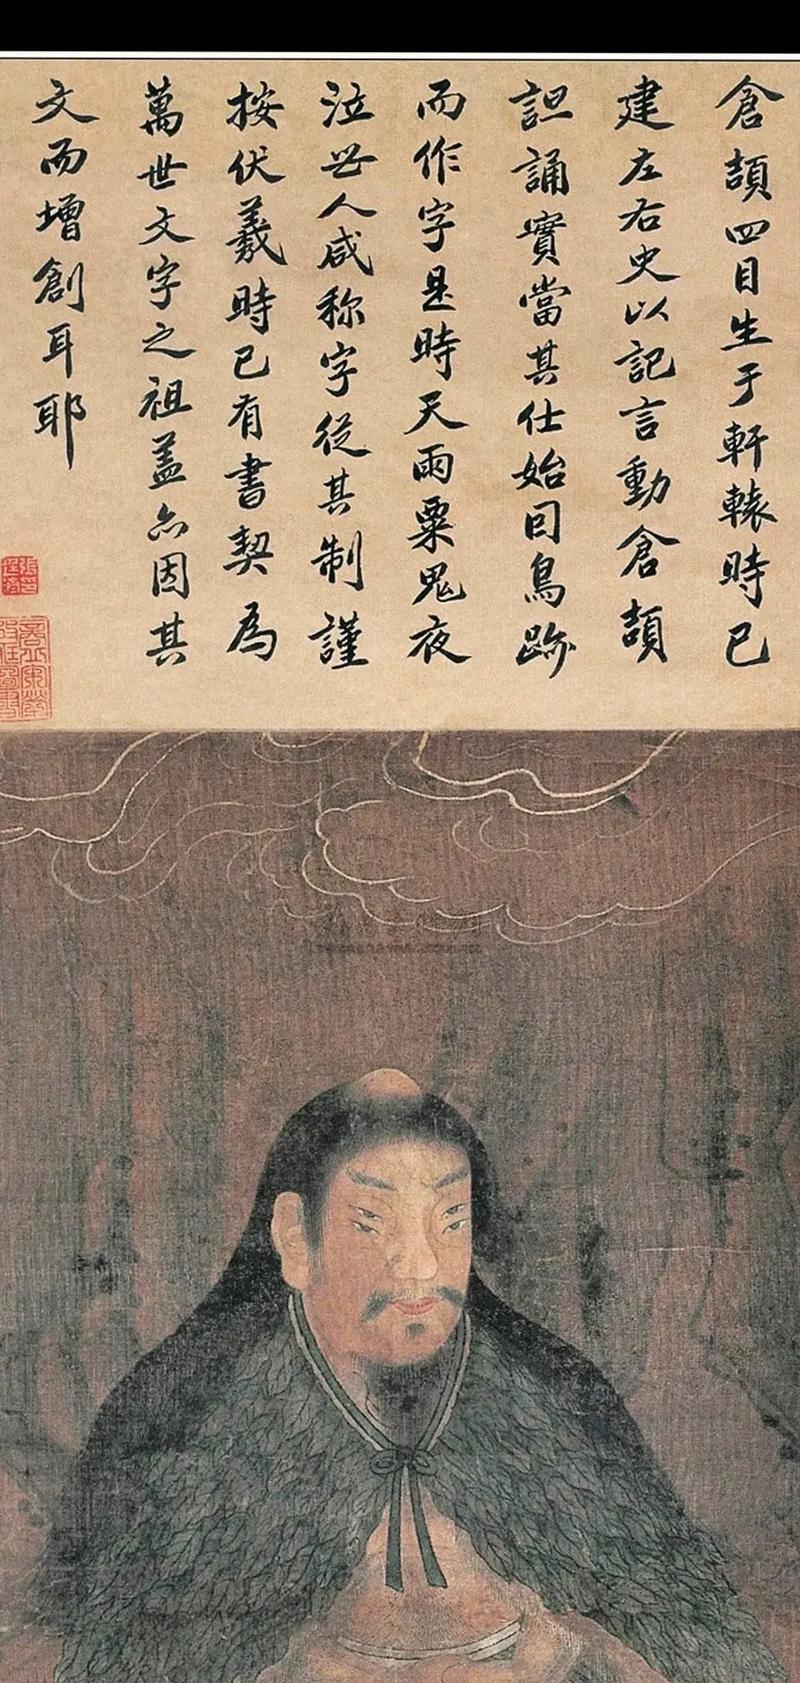 倉頡四目生于軒轅時已
建左右史以記言動倉頡
誦實當其仕始因鳥跡
而作字是時天雨粟鬼夜
泣世人咸称字從其制謹
按伏羲時已有書契為
萬世文字之祖蓋亦因其
文而增創耳耶